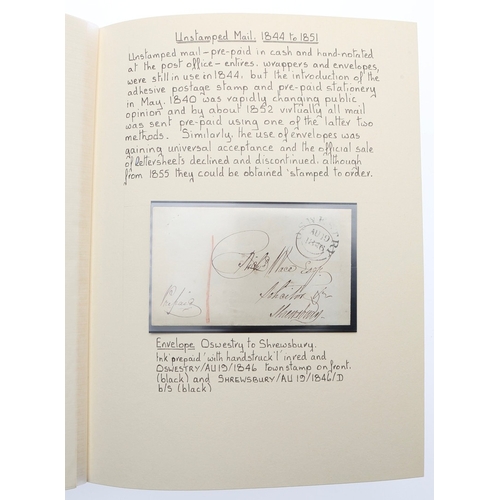 Unstamped Mail. 1844 to 1851
Unstamped mail – pre-paid in cash and hand-notated
at the post office – entires, wrappers and envelopes,
were still in use in 1844, but the introduction of the
adhesive postage stamp and pre-paid stationery
in May, 1840 was rapidly changing public
opinion and by about 1852 virtually all mail
was sent pre-paid using one of the latter two
methods. Similarly, the use of envelopes was
gaining universal acceptance and the official sale
of lettersheets declined and discontinued, although
from 1855 they could be obtained 'stamped to order.
AU 19
Esqr
Solicitor
Shrewsbury
Envelope Oswestry to Shrewsbury.
Ink 'prepaid' with handstruck '1' in red and
OSWESTRY/AU 19/1846 Townstamp on front.
(black) and SHREWSBURY/AU 19/1846/D
b/s (black)